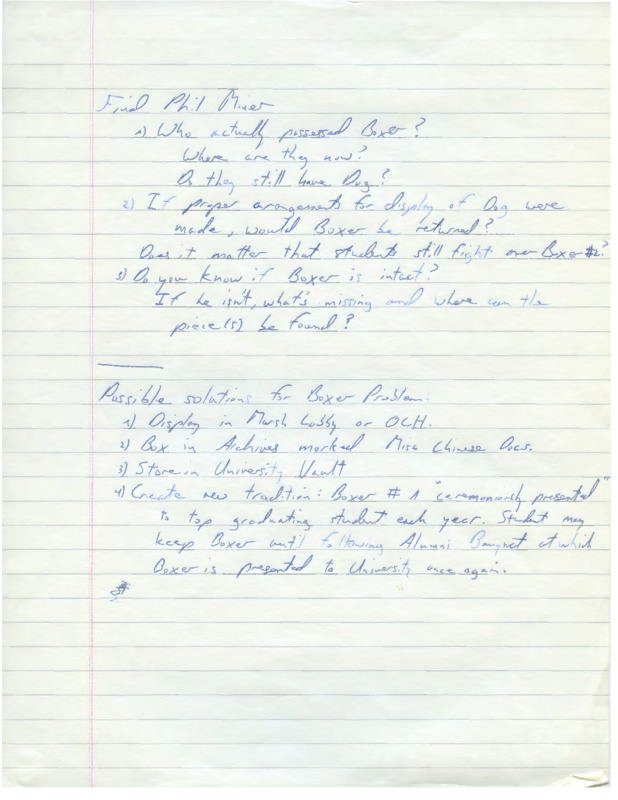 Find Phil Miner
1) Who actually possessed Boxer?
Where are they now?
Do they still have Dog?
2) If proper arrangements for display of Dog were
made, would Boxer be returned?
Does it matter that students still fight over Boxer #2?
3) Do you know if Boxer is intact?
If he isn't, what's missing and where can the
piece(s) be found?
Possible solutions for Boxer Problem:
1) Display in Marsh Lobby or OCH.
2) Box in Archives marked Misc Chinese Docs.
3) Store in University Vault
4) Create new tradition: Boxer # 1 "ceremoniously presented"
to top graduating student each year. Student may
keep Boxer until following Alumni Banquet at which
Boxer is presented to University once again.